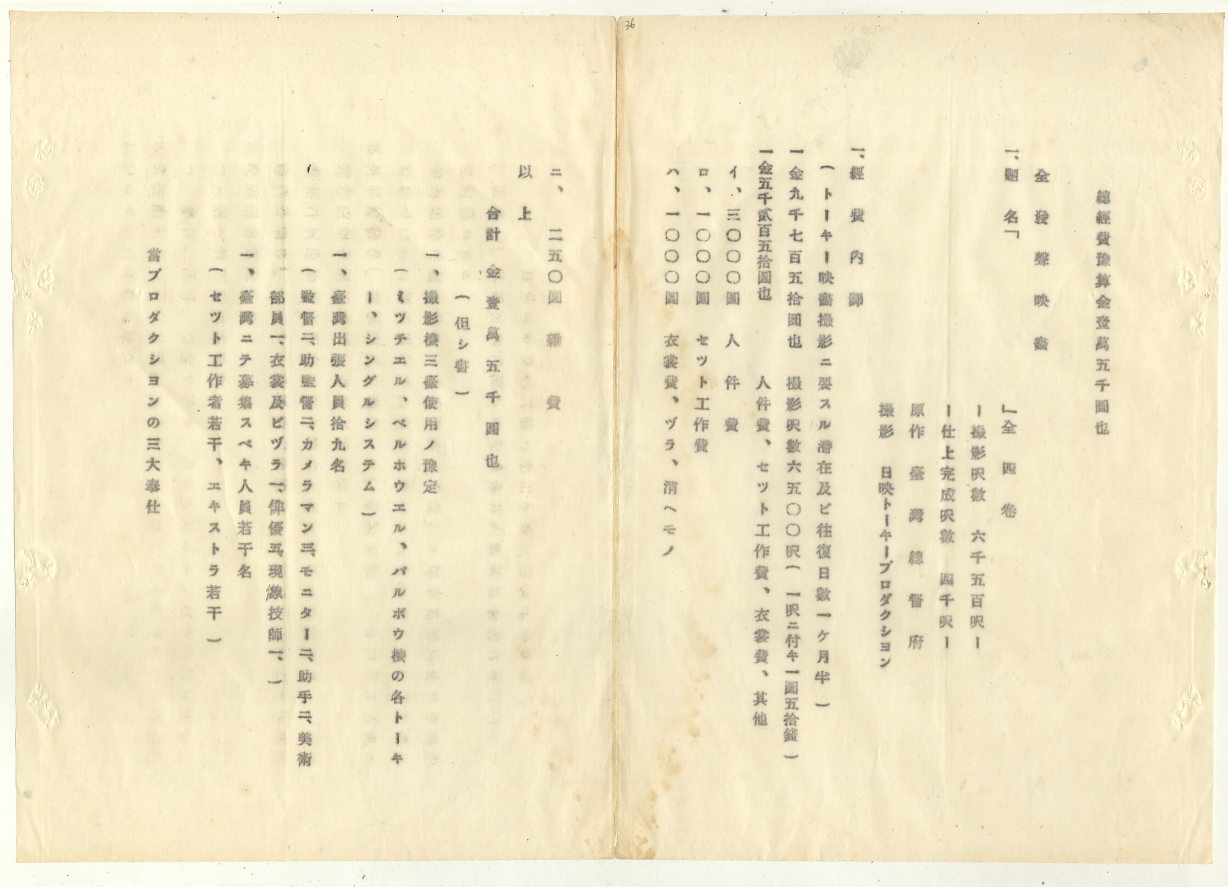 36
總經費豫算金壹萬五千圓也
全發聲映畫
一、題名「
」全四卷
ー撮影呎數 六千五百呎ー
ー仕上完成呎數 四千呎ー
原作 臺灣總督府
撮影 日映トーキープロダクシヨン
一、經費內譯
(トーキー映畵撮影ニ要スル滯在及ビ往復日數一ケ月半)
一金九千七百五拾圓也 撮影呎數六五〇〇呎(一呎ニ付キ一圓五拾錢)
一金五千貳百五拾圓也 人件費、セツト工作費、衣裳費、其他
イ、三〇〇〇圓 人件費
ロ、一〇〇〇圓 セツト工作費
ハ、一〇〇〇圓 衣裳費、ヅラ、消ヘモノ
ニ、二五〇圓 雜費
以上
合計 金壹萬五千圓也
(但シ書)
一、撮影機三臺使用ノ豫定
(ミツチエル、ベルホウエル、パルボウ機の各トーキ
ー、シングルシステム)
一、臺灣出張人員拾九名
(監督二、助監督二、カメラマン三、モニター二、助手二、美術
部員一、衣裳及ビヅラ一、俳優五、現像技師一、)
一、臺灣ニテ募集スベキ人員若干名
(セツト工作者若干、エキストラ若干)
當プロダクシヨンの三大奉仕